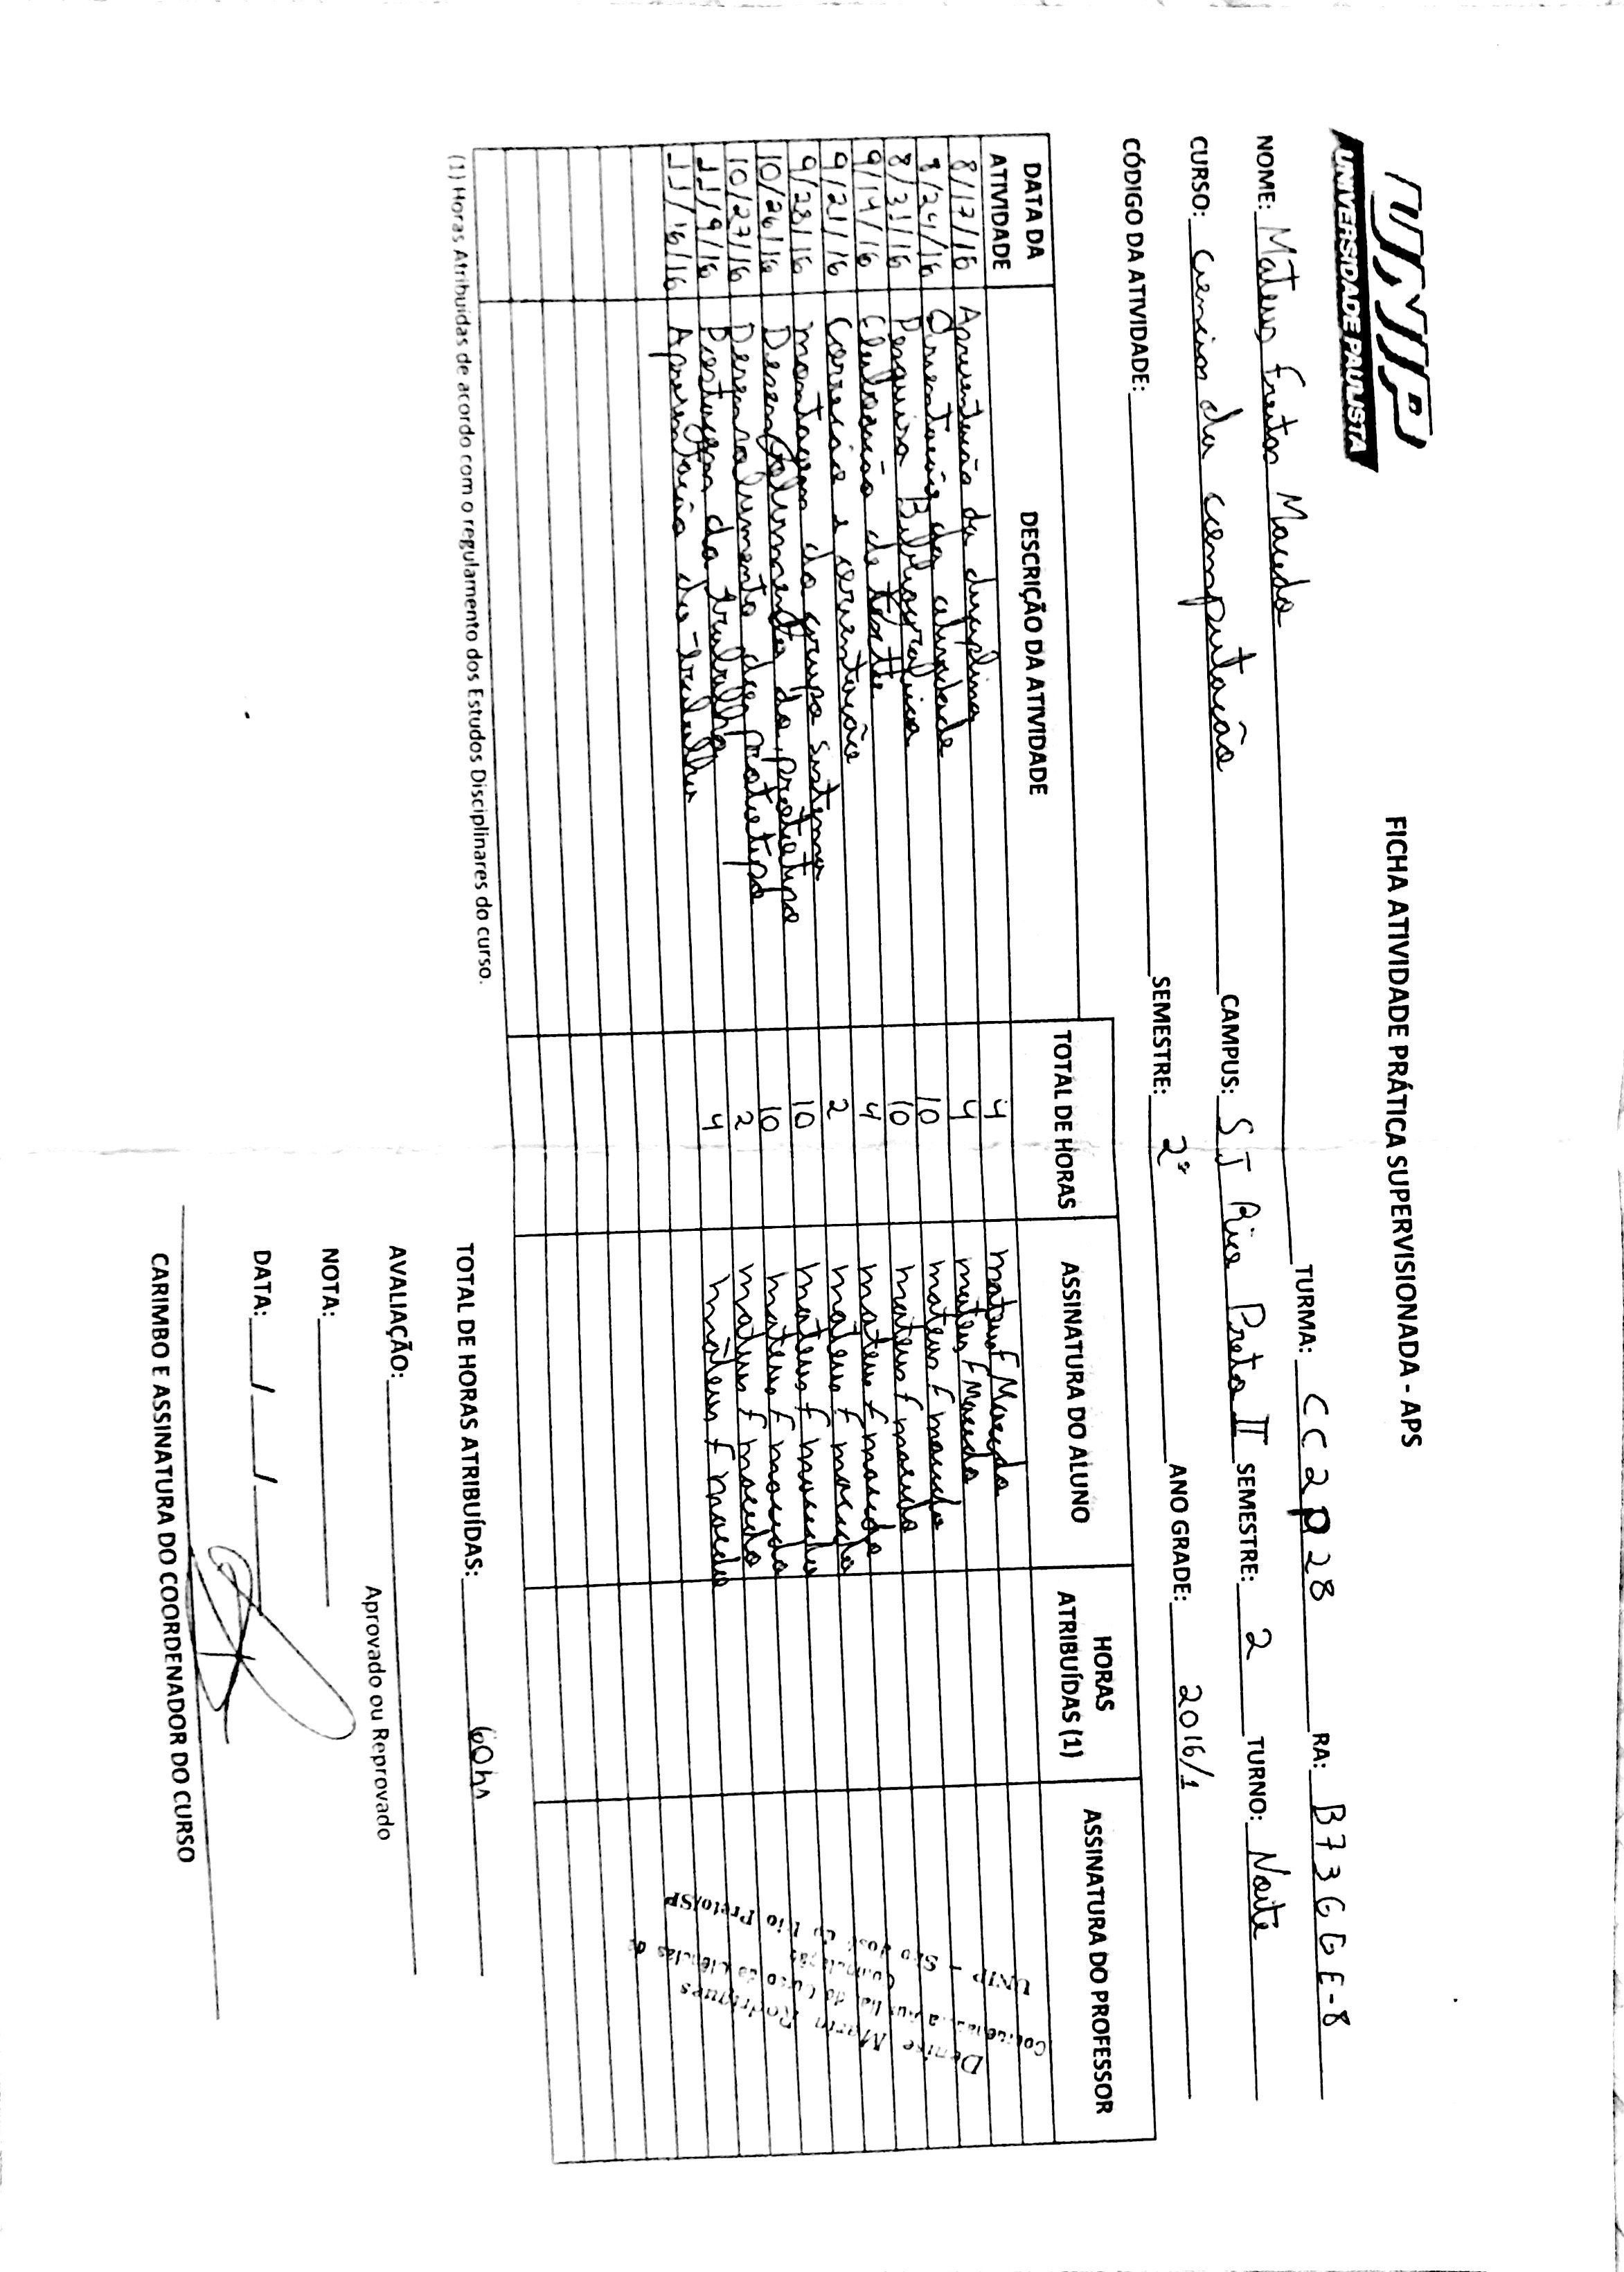 UNIP
UNIVERSIDADE PAULISTA
FICHA ATIVIDADE PRÁTICA SUPERVISIONADA - APS
NOME: Mateus Freitas Macedo TURMA: CC2P28 RA: B73GGE-8
CURSO: Ciencias da computação CAMPUS: S J Rio Preto II SEMESTRE: 2 TURNO: Noite
CÓDIGO DA ATIVIDADE: SEMESTRE: 2º ANO GRADE: 2016/1
DATA DA ATIVIDADE DESCRIÇÃO DA ATIVIDADE TOTAL DE HORAS ASSINATURA DO ALUNO HORAS ATRIBUÍDAS (1) ASSINATURA DO PROFESSOR
8/17/16 Apresentação da disciplina 4 Mateus F Macedo
8/24/16 Orientação da atividade 4 Mateus F Macedo
8/31/16 Pesquisa Bibliografica 10 Mateus F Macedo
9/14/16 Elaboração de texto 10 Mateus F Macedo
9/21/16 Correção e orientação 4 Mateus F Macedo
9/28/16 Montagem do grupo sistema 2 Mateus F Macedo
10/26/16 Desenvolvimento do prototipo 10 Mateus F Macedo
10/27/16 Desenvolvimento do prototipo 10 Mateus F Macedo
11/9/16 Postagem do trabalho 2 Mateus F Macedo
11/16/16 Apresentação do trabalho 4 Mateus F Macedo
Denise Marin Rodrigues
Coordenadora Auxiliar do Curso de Ciências da
Computação
UNIP - São José do Rio Preto/SP
(1) Horas Atribuídas de acordo com o regulamento dos Estudos Disciplinares do curso.
TOTAL DE HORAS ATRIBUÍDAS: 60hs
AVALIAÇÃO:
Aprovado ou Reprovado
NOTA:
DATA: / /
CARIMBO E ASSINATURA DO COORDENADOR DO CURSO